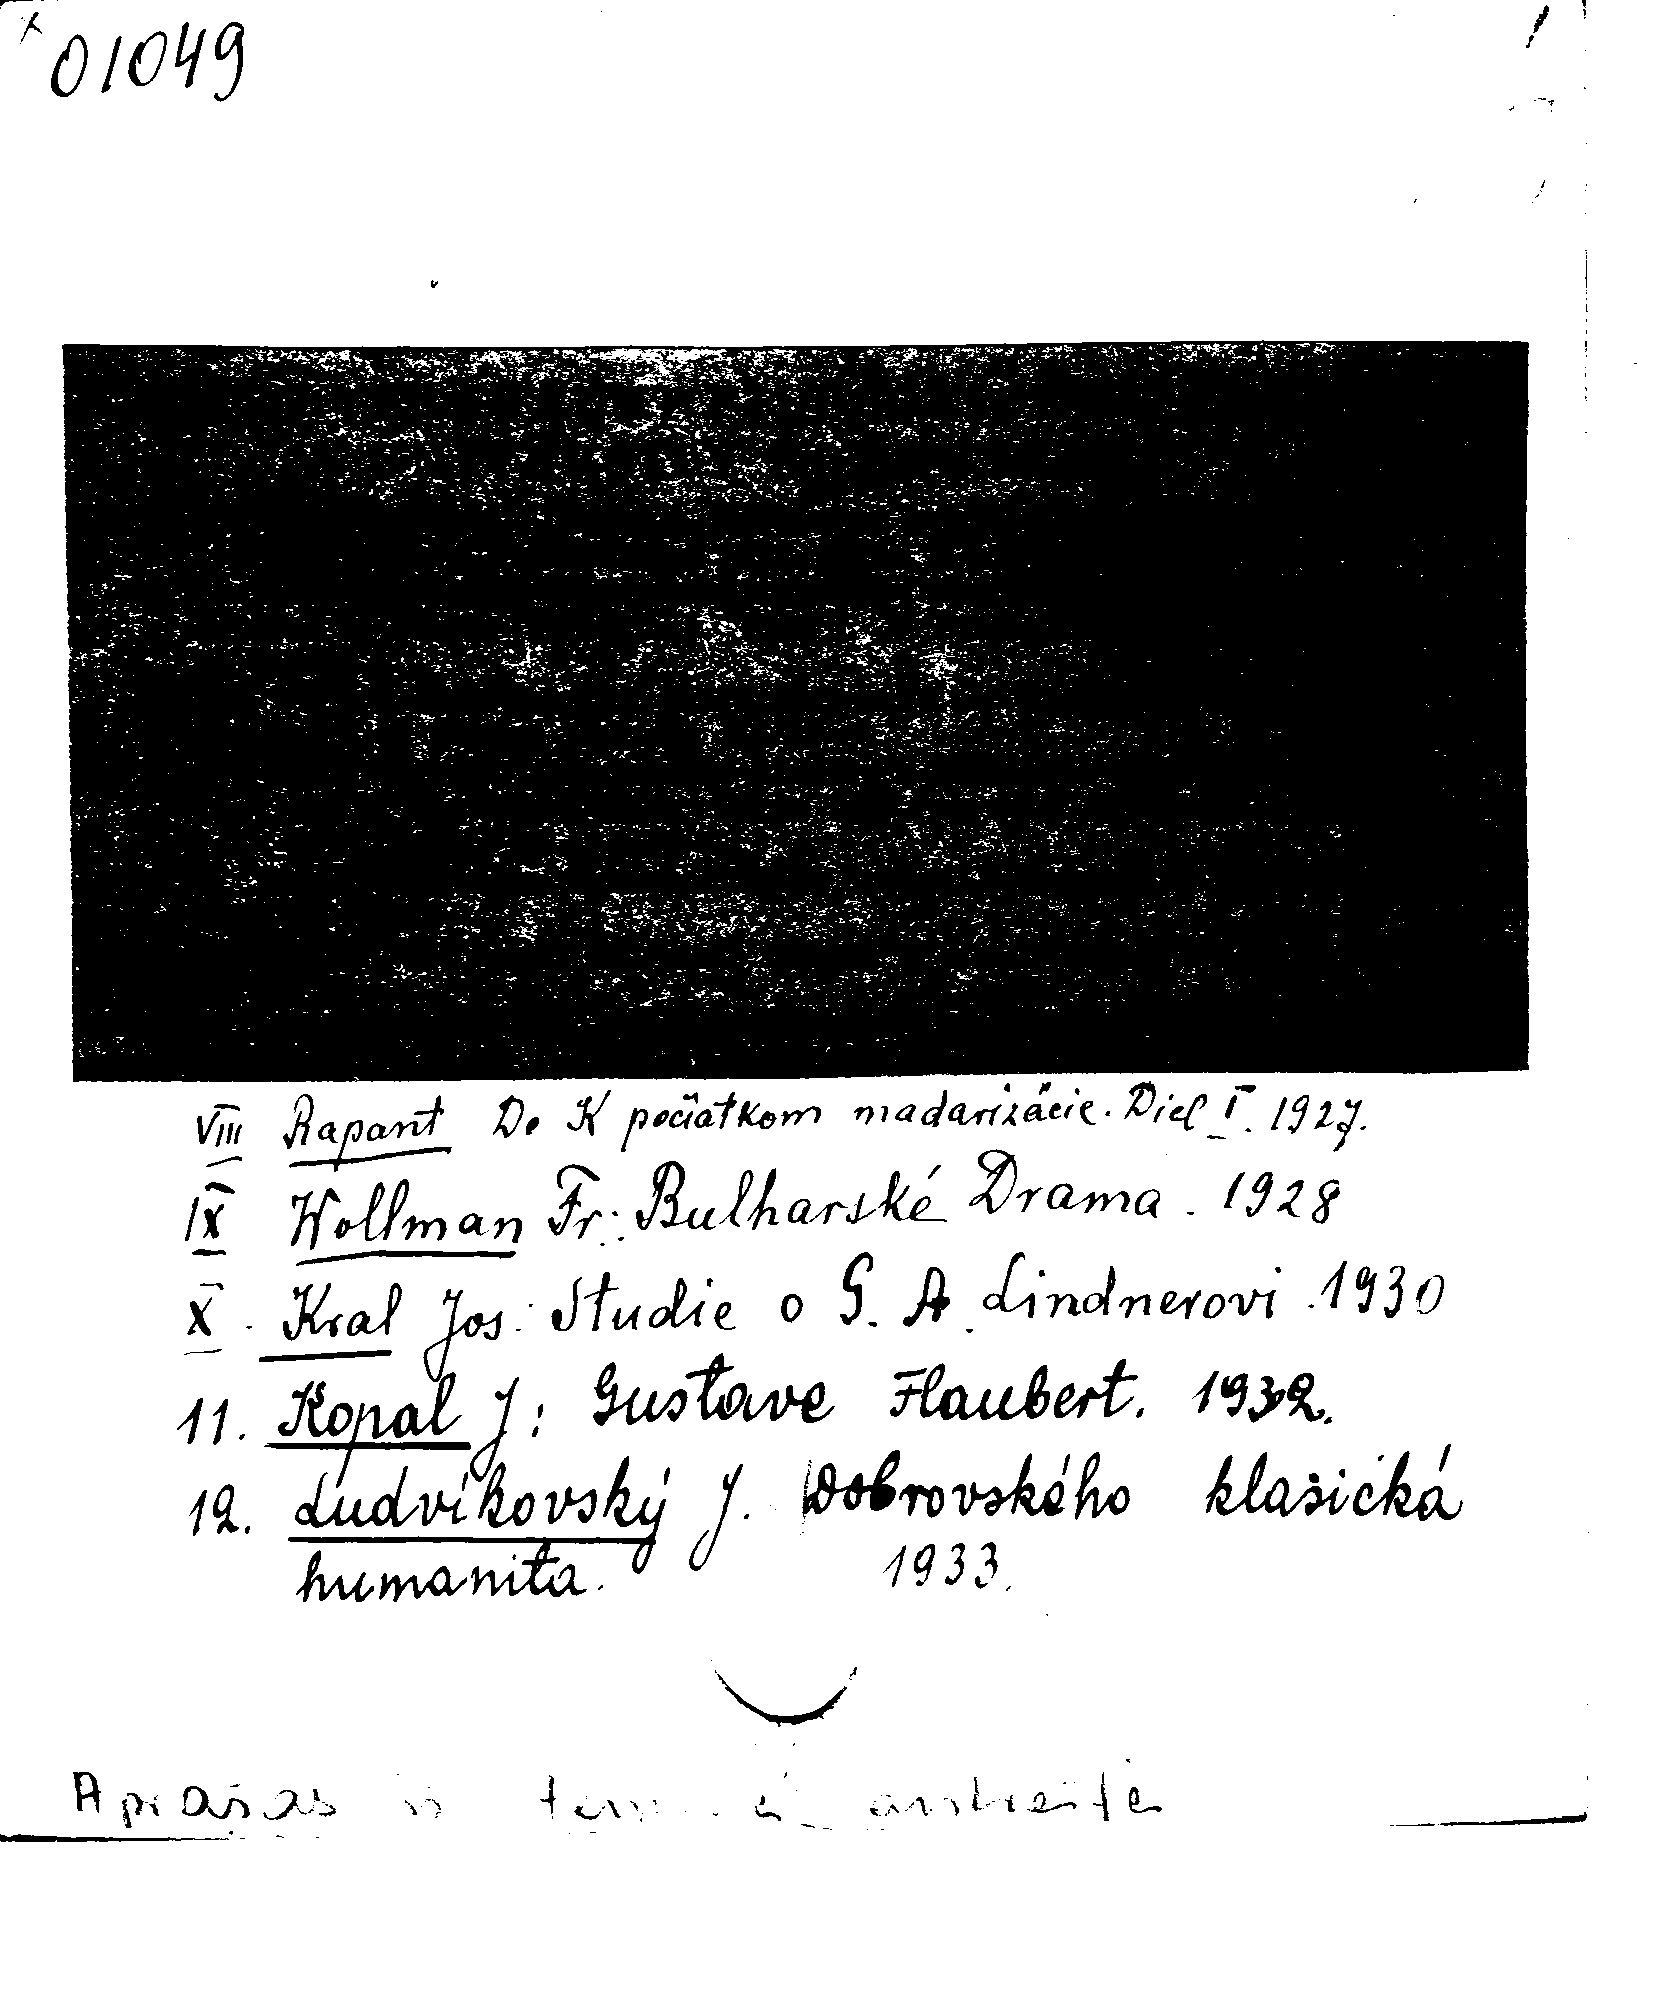 01049
VIII Rapant D. K počiatkom madarizácie. Diel I. 1927.
IX Wollman Fr: Bulharské Drama. 1928
X. Kral Jos: Studie o G. A. Lindnerovi. 1930
11. Kopal J: Gustave Flaubert. 1932.
12. Ludvíkovský J. Dobrovského klasická
humanita. 1933.
Aprašas